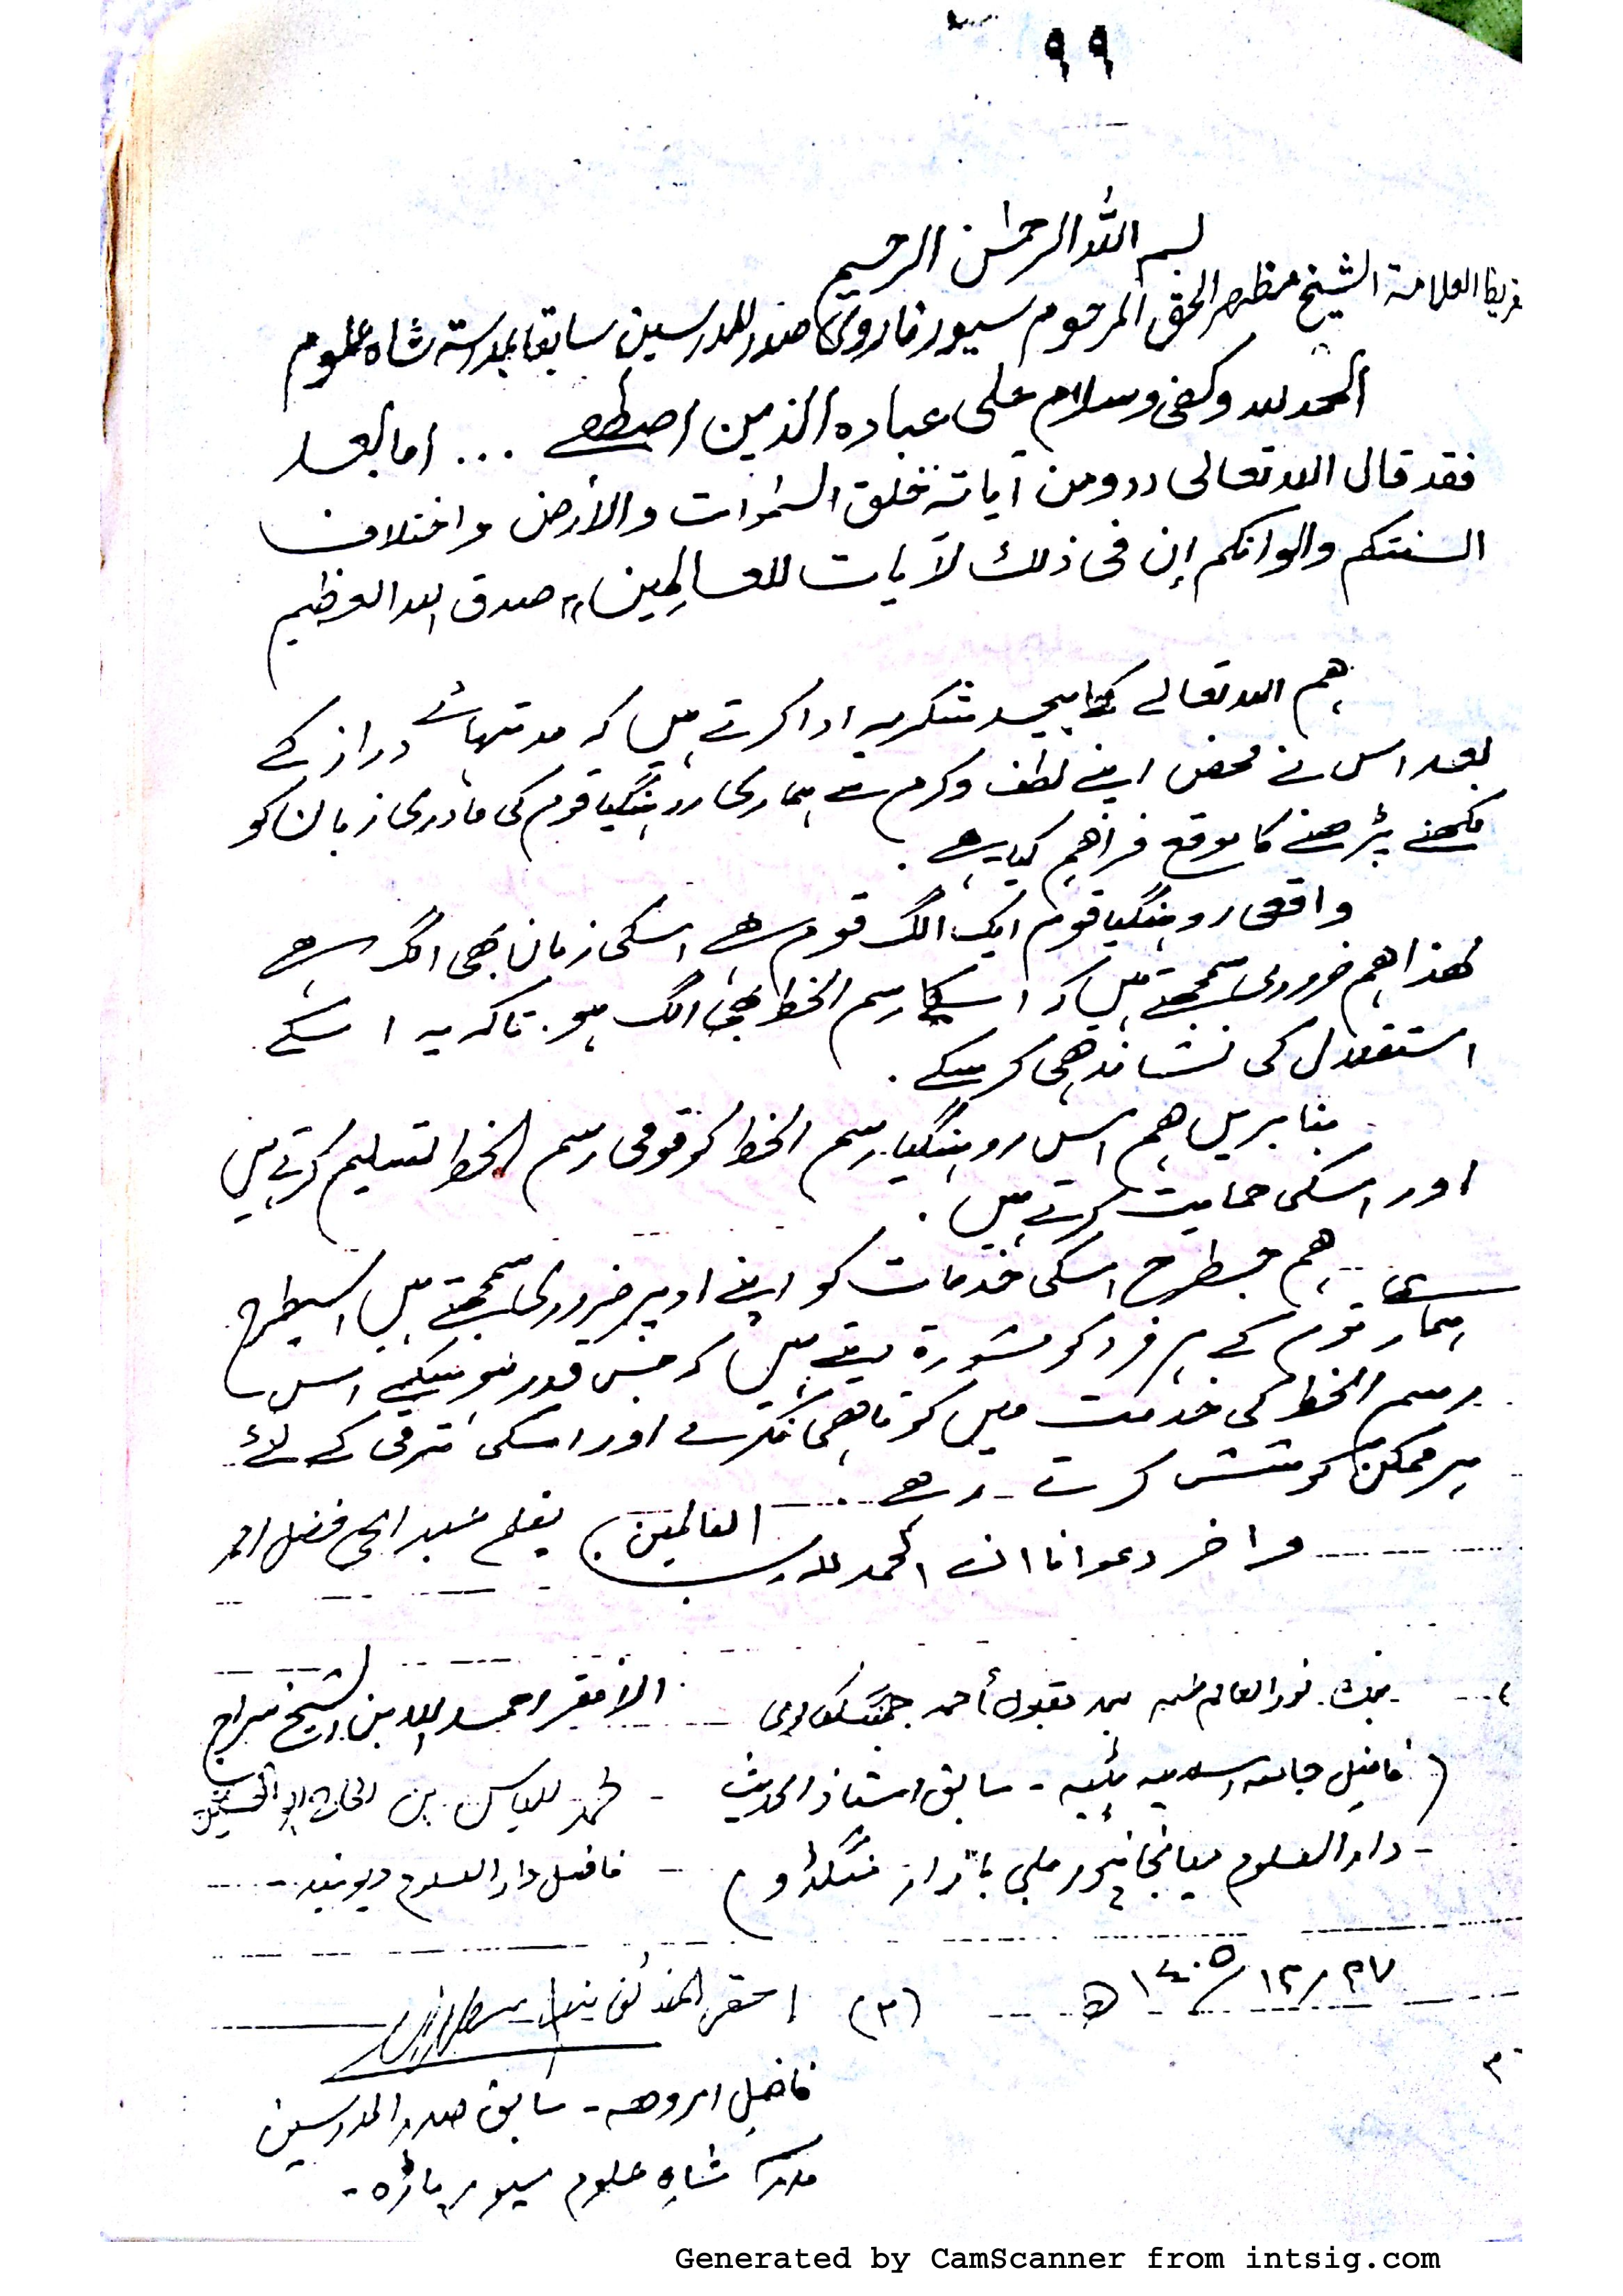 ٩٩
بسم الله الرحمٰن الرحيم
العلامة الشيخ مظهر الحق المرحوم سيور فاروی صدر للمدرسين سابقا بمدرسة شاه علوم
الحمد لله وكفى وسلام على عباده الذين اصطفے ... اما بعد
فقد قال الله تعالى ,, ومن آياته خلق السمٰوات والأرض واختلاف
السنتكم والوانكم إن فى ذلك لآيات للعالِمين ،، صدق الله العظيم
ہم اللہ تعالے کا بیحد شکریہ ادا کرتے ہیں کہ مدتہائے دراز کے
بعد اس نے محض اپنے لطف وکرم سے ہماری روہنگیا قوم کی مادری زبان کو
لکھنے پڑھنے کا موقع فراہم کیا ہے .
واقعی روہنگیا قوم ایک الگ قوم ہے اسکی زبان بھی الگ ہے
لھذا ہم ضروری سمجھتے ہیں کہ اسکا رسم الخط بھی الگ ہو . تاکہ یہ اسکے
استقلال کی نشاندہی کر سکے .
بنا بریں ہم اس روہنگیا رسم الخط کو قومی رسم الخط تسلیم کرتے ہیں
اور اسکی حمایت کرتے ہیں .
ہم جسطرح اسکی خدمات کو اپنے اوپر ضروری سمجھتے ہیں اسیطرح
ہماری قوم کے ہر فرد کو مشورة دیتے ہیں کہ جس قدر ہو سکے اس
رسم الخط کی خدمت میں کوتاہی نکرے اور اسکی ترقی کے لئے
ہر ممکن کوشش کرتے رہے .
واخر دعوانا ان الحمد لله رب العالمين . بقلم عبد الحی فضل احمد
نور العالم مقبول أحمد الافقر احمد الله بن الشيخ سراج
( فاضل جامعہ اسلامیہ پٹیہ - سابق استاذ الحدیث - محمد الیاس بن الحاج
- دار العلوم بازار منگڈاو ) - فاضل دار العلوم دیوبند -
٢٧/١٢/١٤٠٥ ھ (٣) احقر
فاضل امروھہ - سابق صدر المدرسین
مدرسہ شاہ علوم سیور پاڑہ -
Generated by CamScanner from intsig.com